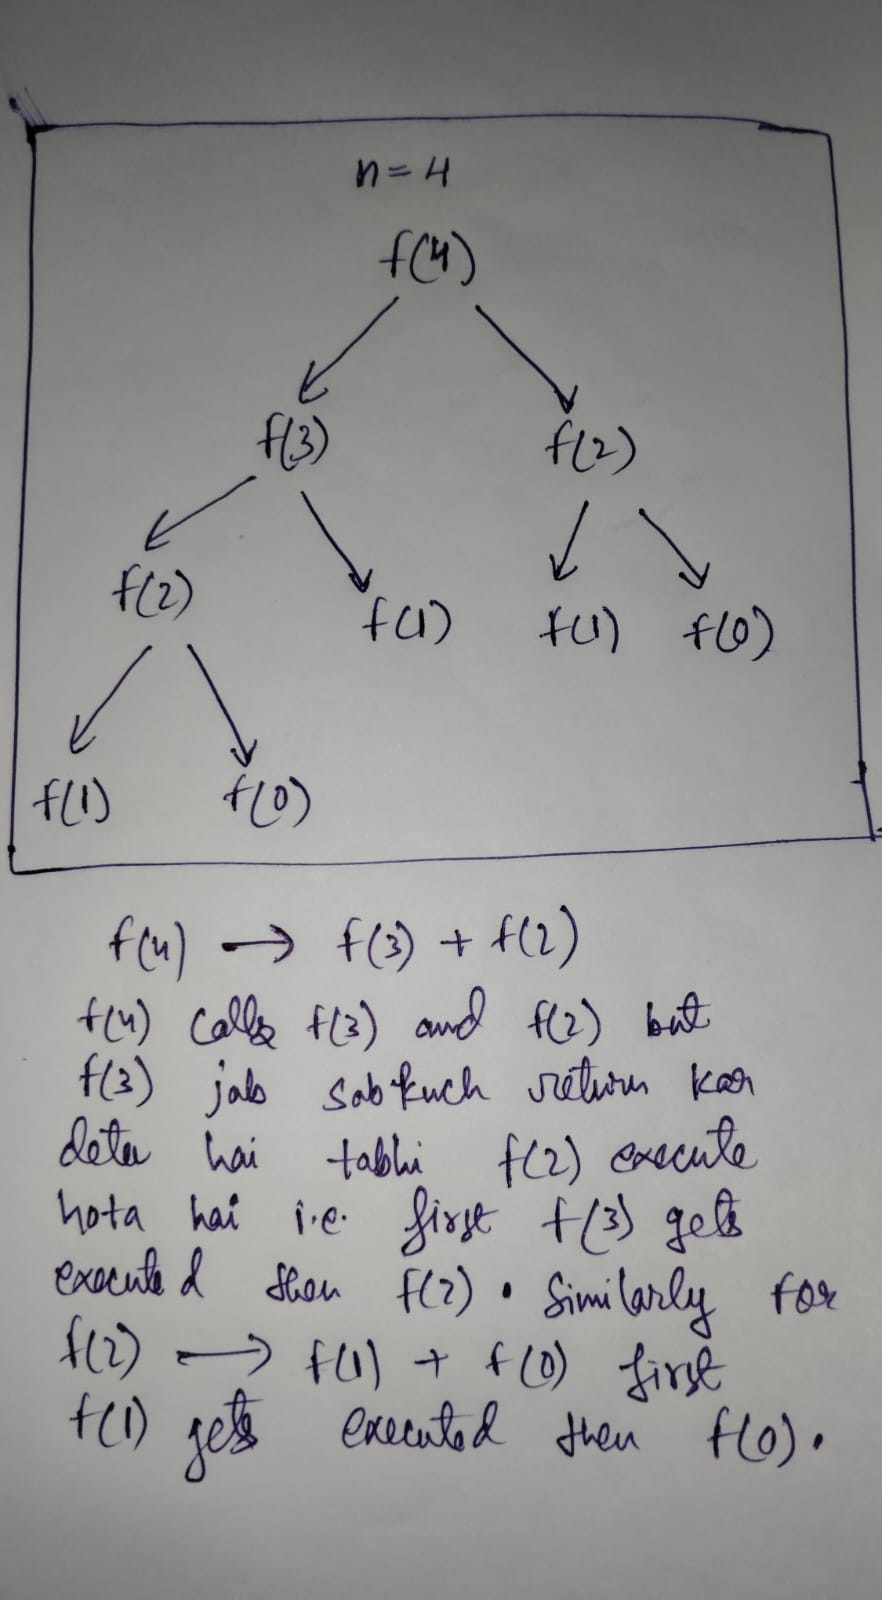 n=4
f(4)
f(3) f(2)
f(2) f(1) f(1) f(0)
f(1) f(0)
f(4) → f(3) + f(2)
f(4) calls f(3) and f(2) but
f(3) jab sab kuch return kar
deta hai tabhi f(2) execute
hota hai i.e. first f(3) gets
executed then f(2). Similarly for
f(2) → f(1) + f(0) first
f(1) gets executed then f(0).